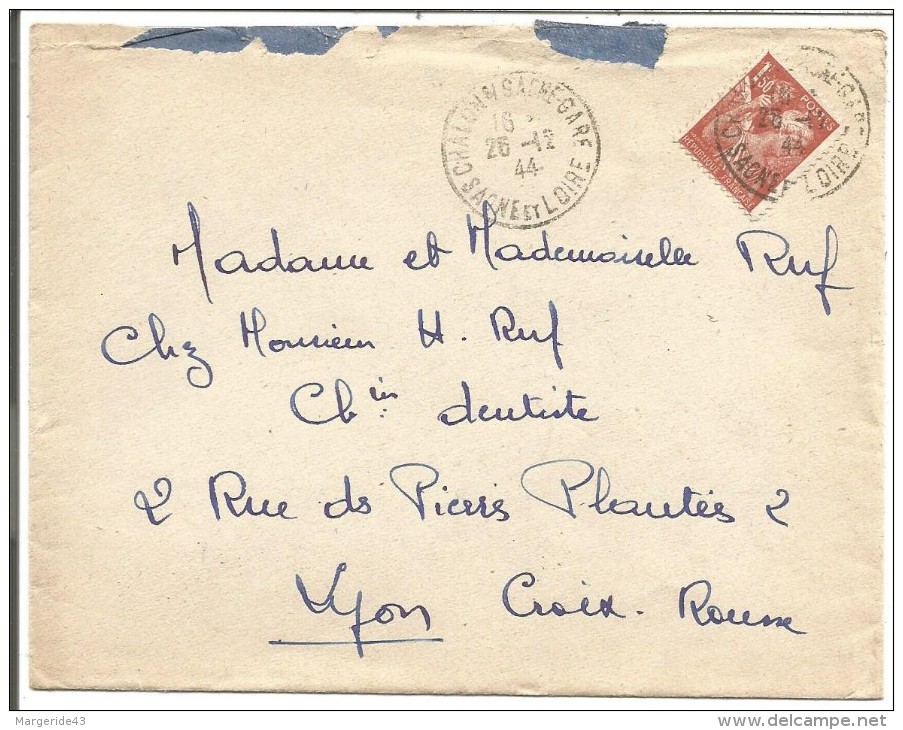 CHALON S/ SAONE-GARE
16
26 -12
44
SAONE ET LOIRE
1F50
POSTES
REPUBLIQUE FRANCAISE
26 -12
44
SAONE ET LOIRE
Madame et Mademoiselle Ruf
Chez Monsieur H. Ruf
Ch ien dentiste
2 Rue des Pierres Plantées 2
Lyon Croix-Rousse
Margeride43
delcampe.net